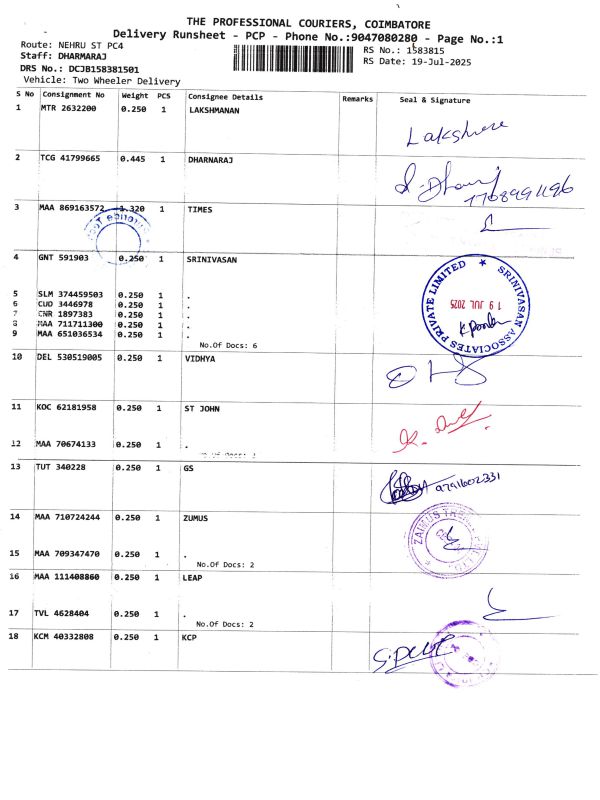 THE PROFESSIONAL COURIERS, COIMBATORE
Delivery Runsheet - PCP - Phone No.:9047080280 - Page No.:1
Route: NEHRU ST PC4
RS No.: 1583815
Staff: DHARMARAJ
RS Date: 19-Jul-2025
DRS No.: DCJB158381501
Vehicle: Two Wheeler Delivery
S No Consignment No Weight PCS Consignee Details Remarks Seal & Signature
1 MTR 2632200 0.250 1 LAKSHMANAN
2 TCG 41799665 0.445 1 DHARNARAJ
3 MAA 869163572 1.320 1 TIMES
4 GNT 591903 0.250 1 SRINIVASAN
SRINIVASAN ASSOCIATES PRIVATE LIMITED
19 JUL 2025
5 SLM 374459503 0.250 1 .
6 CUD 3446978 0.250 1 .
7 CNR 1897383 0.250 1 .
8 MAA 711711300 0.250 1 .
9 MAA 651036534 0.250 1 .
No.Of Docs: 6
10 DEL 530519005 0.250 1 VIDHYA
11 KOC 62181958 0.250 1 ST JOHN
12 MAA 70674133 0.250 1 .
13 TUT 340228 0.250 1 GS
9791602331
14 MAA 710724244 0.250 1 ZUMUS
15 MAA 709347470 0.250 1 .
No.Of Docs: 2
16 MAA 111408860 0.250 1 LEAP
17 TVL 4628404 0.250 1 .
No.Of Docs: 2
18 KCM 40332808 0.250 1 KCP